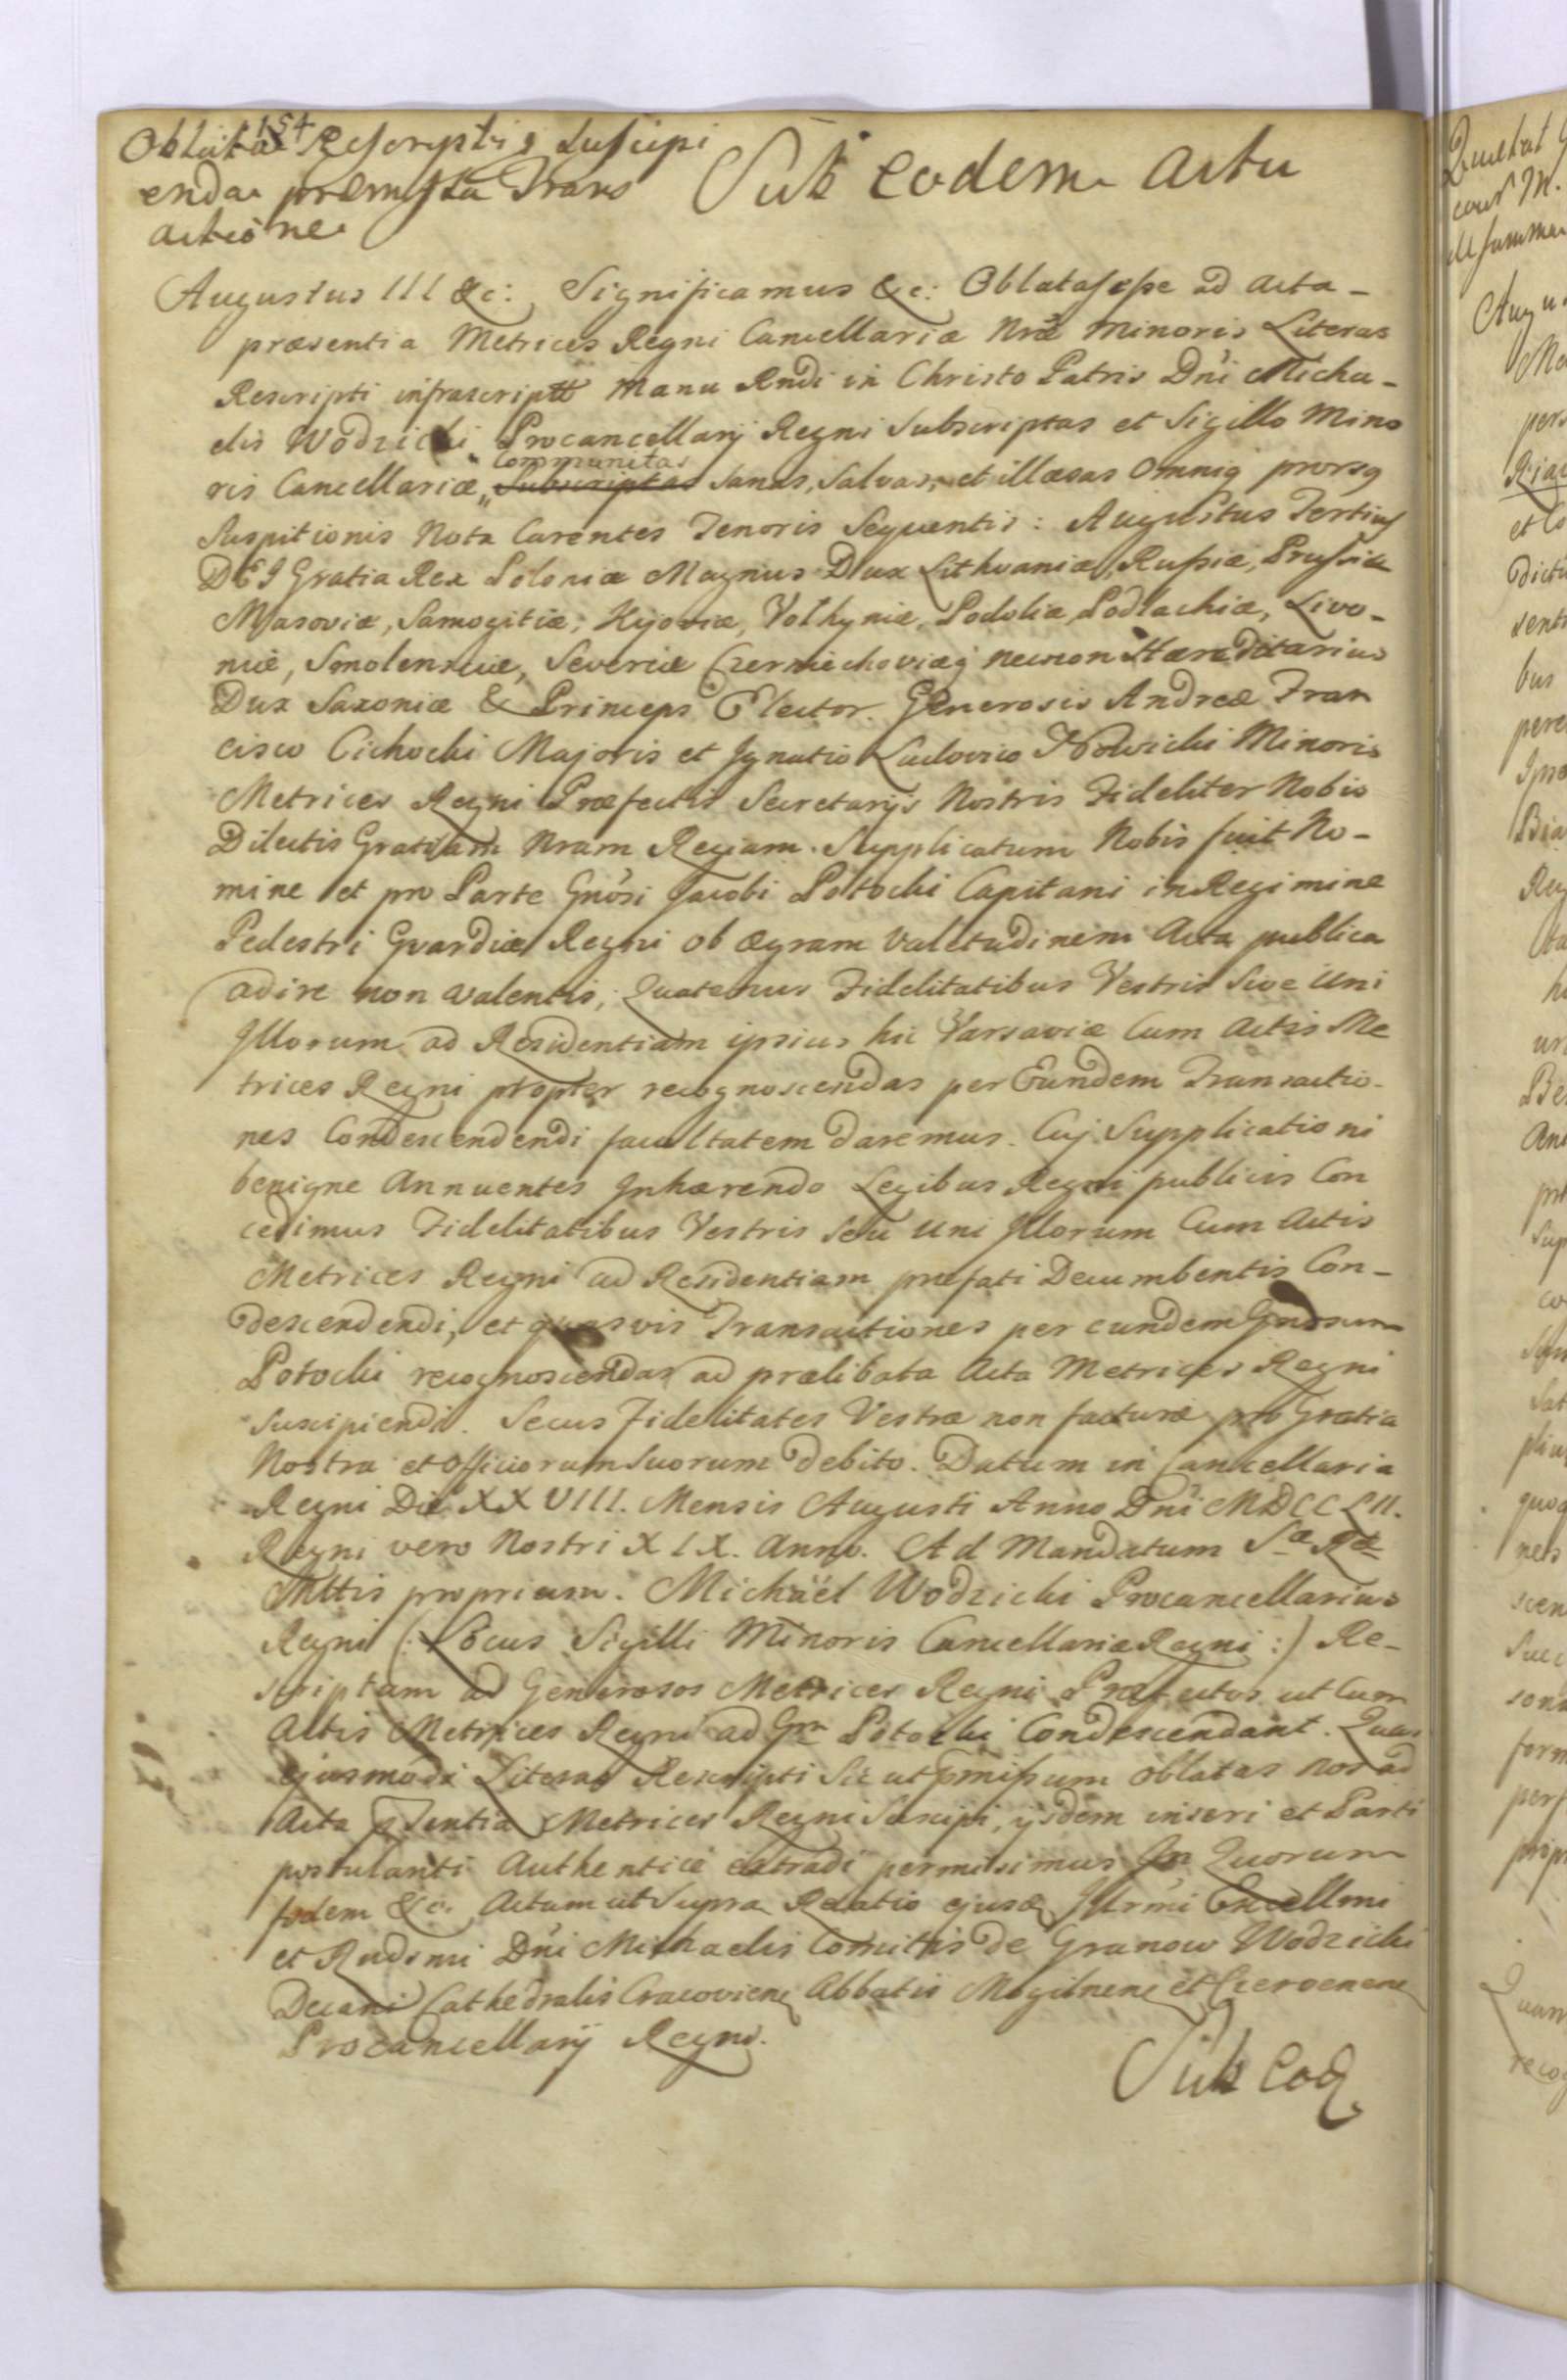 154
Oblata Rescripti Suscipi
enda præmissa Trans
actione
Sub eodem actu
Augustus III &c: Significamus &c: Oblatas esse ad acta
præsentia Metrices Regni Cancellariæ Nræ Minoris Literas
Rescripti infrascripti Manu Rndi in Christo Patris Dni Micha-
elis Wodzicki Procancellarij Regni Subscriptas et Sigillo Mino
ris Cancellariæ Communitas Subscriptas Sanas, Salvas, et illæsas Omniq prorsq
Suspitionis Nota Carentes Tenoris Sequentis: Augustus Tertius
DEI Gratia Rex Poloniæ Magnus Dux Lithvaniæ, Russiæ, Prussiæ
Masoviæ, Samogitiæ, Kijoviæ, Volhyniæ, Podoliæ Podlachiæ, Livo-
niæ, Smolensciæ, Severiæ Czerniechoviæq necnon Hæreditarius
Dux Saxoniæ & Princeps Elector. Generosis Andreæ Fran
cisco Cichocki Majoris et Ignatio Ludovico Nowicki Minoris
Metrices Regni Præfectis Secretarijs Nostris Fideliter Nobis
Dilectis Gratiam Nram Regiam. Supplicatum Nobis fuit No-
mine et pro Parte Gnosi Jacobi Potocki Capitani in Regimine
Pedestri Gvardiæ Regni ob ægram valetudinem Acta publica
adire non valentis, Quatenus Fidelitatibus Vestris Sive Uni
Illorum ad Residentiam ipsius hic Varsaviæ Cum Actis Me
trices Regni propter recognoscendas per Eundem Transactio-
nes Condescendendi facultatem daremus. Cuj Supplicationi
benigne Annuentes Inhærendo Legibus Regni publicis Con
cedimus Fidelitatibus Vestris Seu Uni Illorum Cum Actis
Metrices Regni ad Residentiam præfati Decumbentis Con-
descendendi, et quasvis Transactiones per eundem Gnosum
Potocki recognoscendas ad prælibata Acta Metrices Regni
Suscipiendi. Secus Fidelitates Vestræ non facturæ pro Gratia
Nostra et Officiorum Suorum debito. Datum in Cancellaria
Regni Die XXVIII. Mensis Augusti Anno Dni MDCCLII.
Regni vero Nostri XIX. Anno. Ad Mandatum Sæ Ræ
Mttis proprium. Michaël Wodzicki Procancellarius
Regni (: Locus Sigilli Minoris Cancellariæ Regni :) Re-
scriptum ad Generosos Metrices Regni Præfectos ut Cum
Actis Metrices Regni ad Gm Potocki Condescendant. Quas
ejusmodi Literas Rescripti Sic ut pmissum oblatas nos ad
Acta psentia Metrices Regni Suscipi, ijsdem inseri et Parti
postulanti Authenticè extradi permisimus In Quorum
fidem &c. Actum ut Supra Relatio ejusd Illrmi Excellmi
et Rndsmi Dni Michaelis Comitis de Granow Wodzicki
Decani Cathedralis Cracoviens Abbatis Mogilnens et Czervenens
Procancellarij Regni.
Sub eod